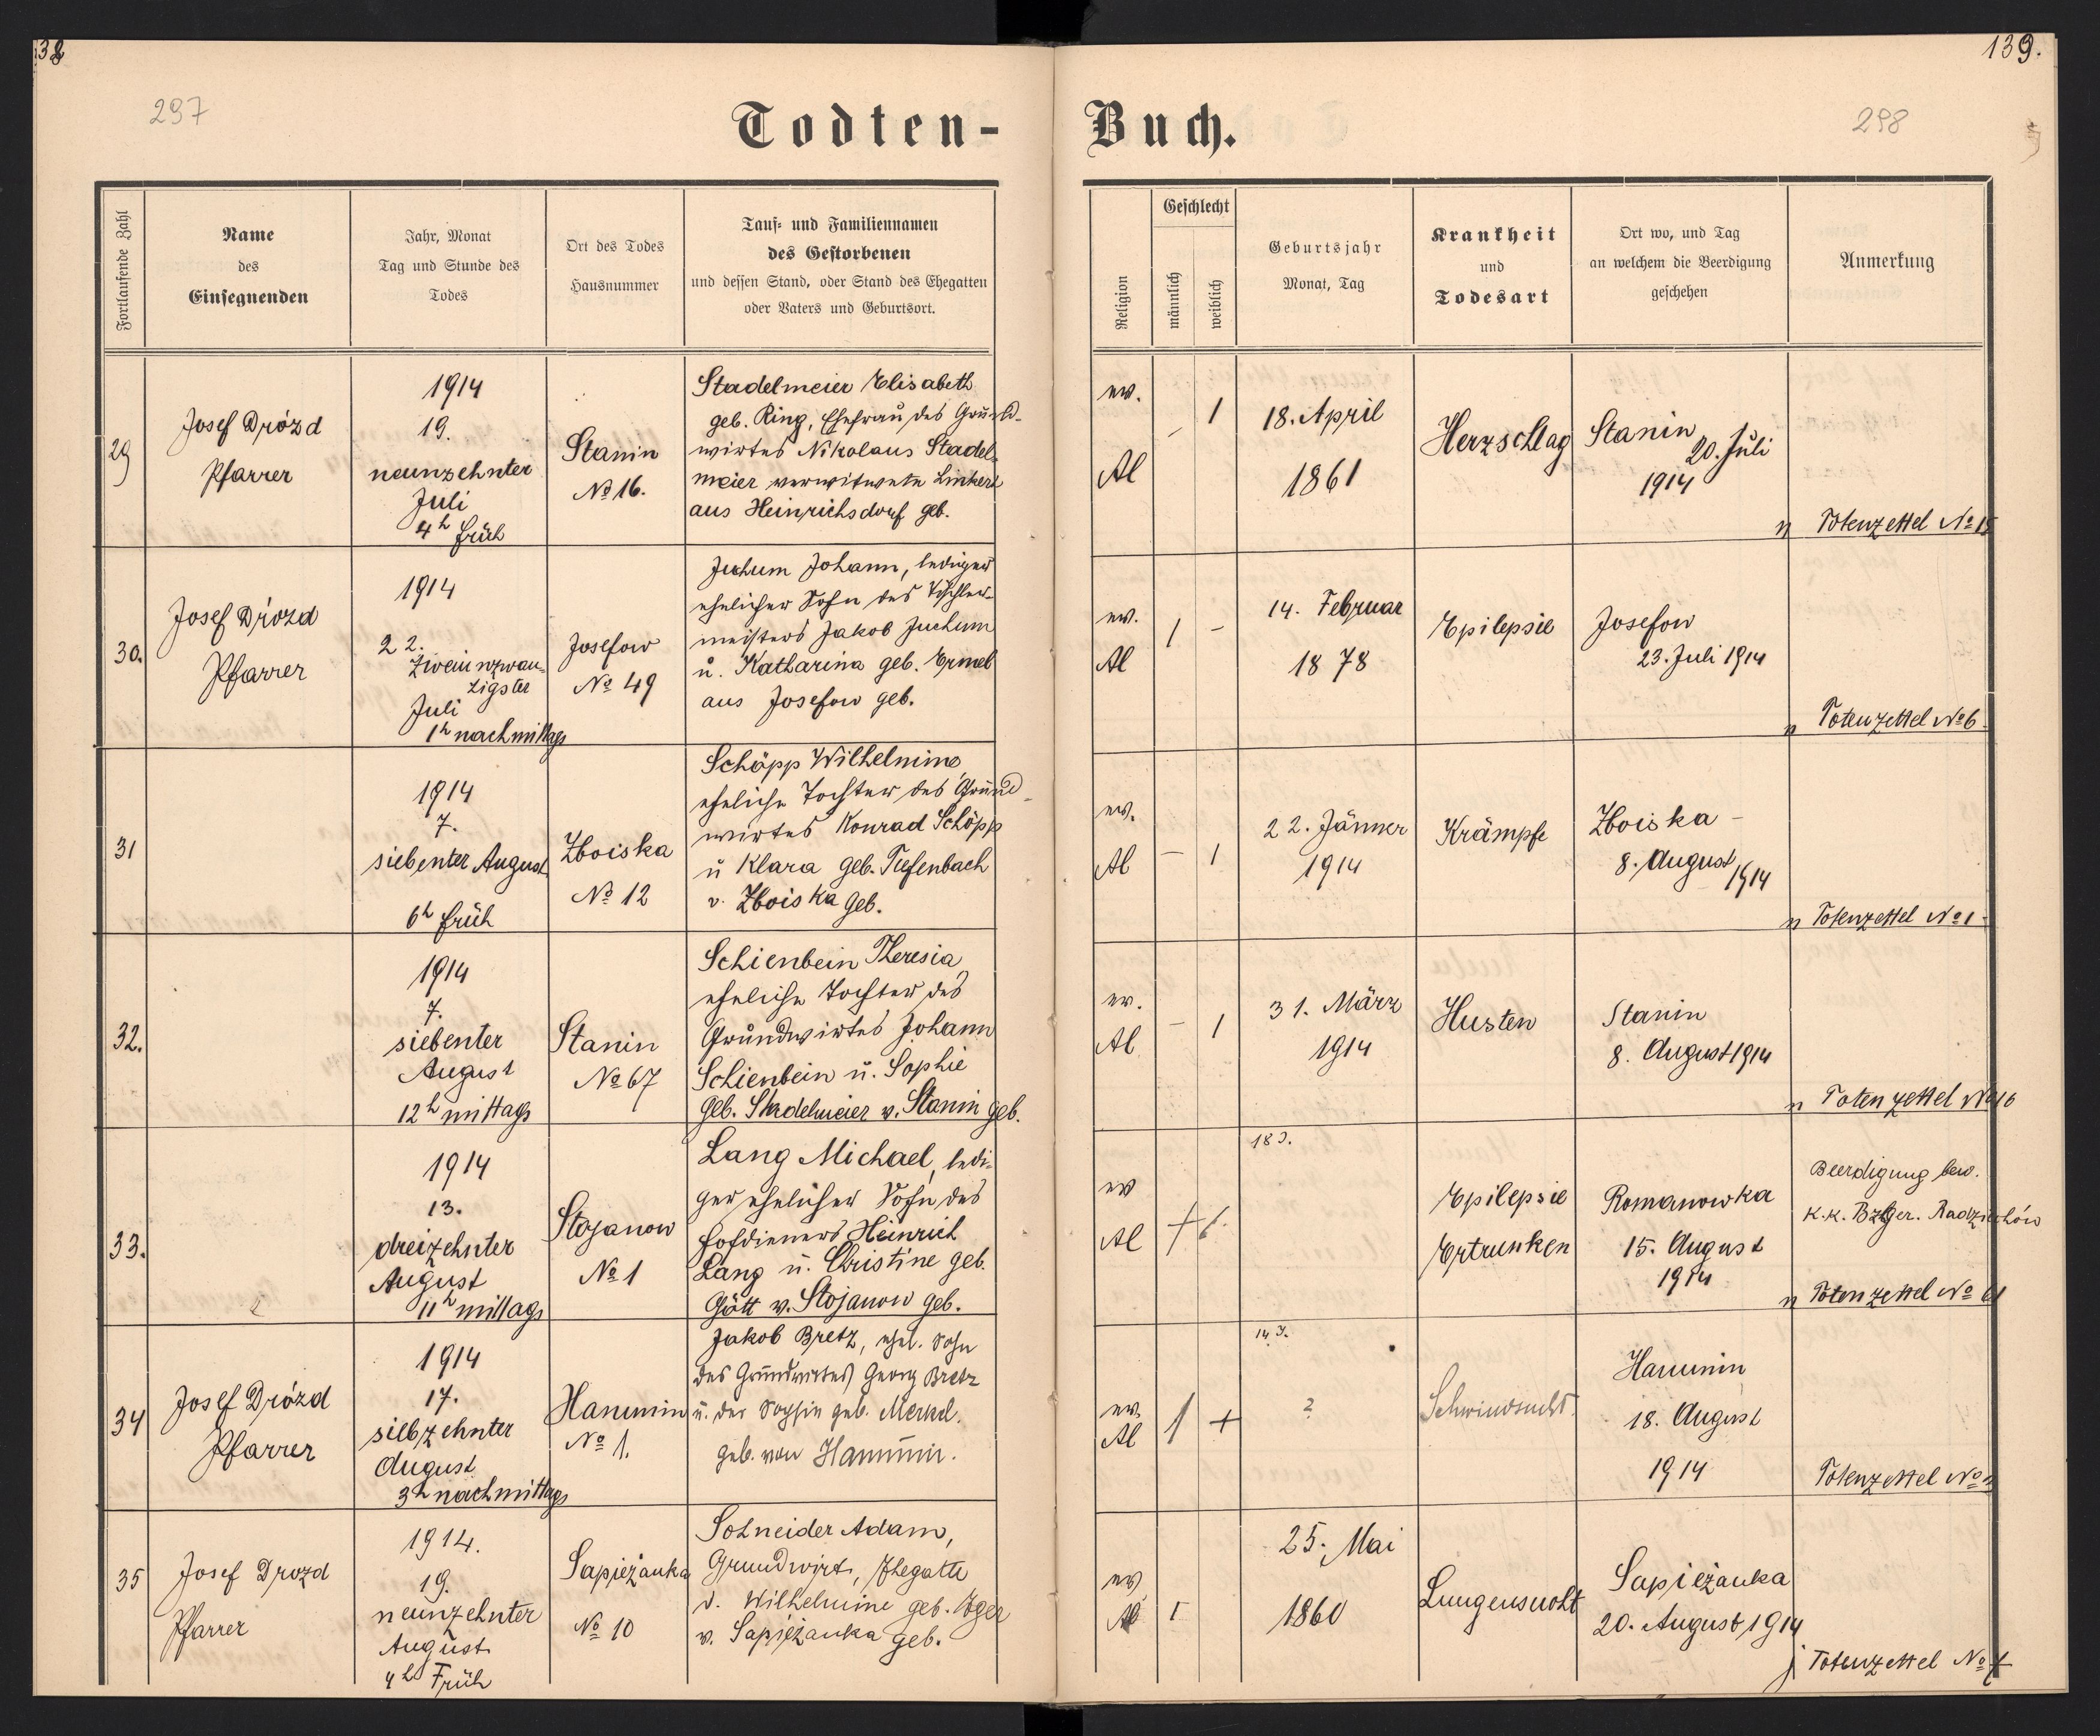 38
139.
297
298
Todten-
Buch.
Fortlaufende Zahl
Name
des
Einsegnenden
Jahr, Monat
Tag und Stunde des
Todes
Ort des Todes
Hausnummer
Tauf- und Familiennamen
des Gestorbenen
und dessen Stand, oder Stand des Ehegatten
oder Vaters und Geburtsort.
Religion
Geschlecht
männlich
weiblich
Geburtsjahr
Monat, Tag
Krankheit
und
Todesart
Ort wo, und Tag
an welchem die Beerdigung
geschehen
Anmerkung
29
Josef Drózd
Pfarrer
1914
19.
neunzehnter
Juli
4h früh
Stanin
No 16.
Stadelmeier Elisabeth
geb. Ring, Ehefrau des Grund-
wirtes Nikolaus Stadel-
meier verwitwete
aus Heinrichsdorf geb.
ev.
Al
-
1
18. April
1861
Herzschlag
Stanin
20. Juli
1914
n Totenzettel No 15
30.
Josef Drózd
Pfarrer
1914
22.
zweiunzwan-
zigster
Juli
1h nachmittags
Josefow
No 49
Juchum Johann, lediger
ehelicher Sohn des Tischler-
meisters Jakob Juchum
u. Katharina geb. Ermel
aus Josefow geb.
ev.
Al
1
-
14. Februar
1878
Epilepsie
Josefow
23. Juli 1914
n Totenzettel No 6
31
1914
7.
siebenter August
6h früh
Zboiska
No 12
Schöpp Wilhelmine
eheliche Tochter des Grund-
wirtes Konrad Schöpp
u Klara geb. Tiefenbach
v. Zboiska geb.
ev.
Al
-
1
22. Jänner
1914
Krämpfe
Zboiska -
8. August 1914
n Totenzettel No 1
32.
1914
7.
siebenter
August
12h mittags
Stanin
No 67
Schienbein Theresia
eheliche Tochter des
Grundwirtes Johann
Schienbein u. Sophie
geb. Stadelmeier v. Stanin geb.
ev.
Al
-
1
31. März
1914
Husten
Stanin
8. August 1914
n Totenzettel No 16
33.
1914
13.
dreizehnter
August
11h mittags
Stojanow
No 1
Lang Michael, ledi-
ger ehelicher Sohn des
Hofdieners Heinrich
Lang u. Christine geb.
Gött v. Stojanow geb.
ev
Al
18 J.
Epilepsie
Ertrunken
Romanowka
15. August
1914
Beerdigung bew.
k.k. Bzger. Radziechów
n Totenzettel No 61
34
Josef Drózd
Pfarrer
1914
17.
siebzehnter
August
3h nachmittags
Hanunin
No 1.
Jakob Bretz, ehel. Sohn
des Grundwirtes Georg Bretz
u. der Sophie geb. Merkel.
geb. von Hanunin.
ev.
Al
1
+
14 J.
?
Schwindsucht.
Hanunin
18. August
1914
Totenzettel No
35
Josef Drozd
Pfarrer
1914.
19.
neunzehnter
August
4h Früh
Sapieżanka
No 10
Schneider Adam,
Grundwirt, Ehegatte
d. Wilhelmine geb.
v. Sapieżanka geb.
ev
Al
1
25. Mai
1860
Lungensucht
Sapieżanka
20. August 1914
j Totenzettel No